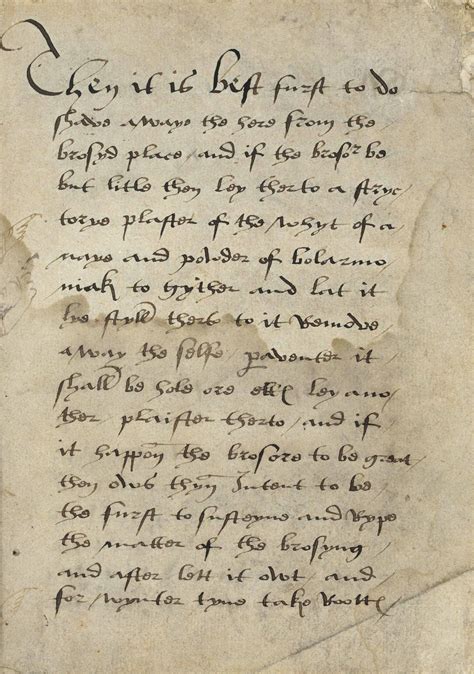 Then it is best furst to do
shave awaye the here from the
brosyd place / and if the brosor be
but litle then ley therto a stryc-
torye plaster of the whyt of a
naye and powder of bolarmo
niak to gyther and lat it
lye styll therto to it Remove
away the selfe paventer it
shall be hole ore ley ano
ther plaister therto / and if
it happon the brosore to be great
then ows thyn Intent to be
the furst to susteyne and Rype
the matter of the brosyng
and after lett it owt / and
for wynter tyme take Roott